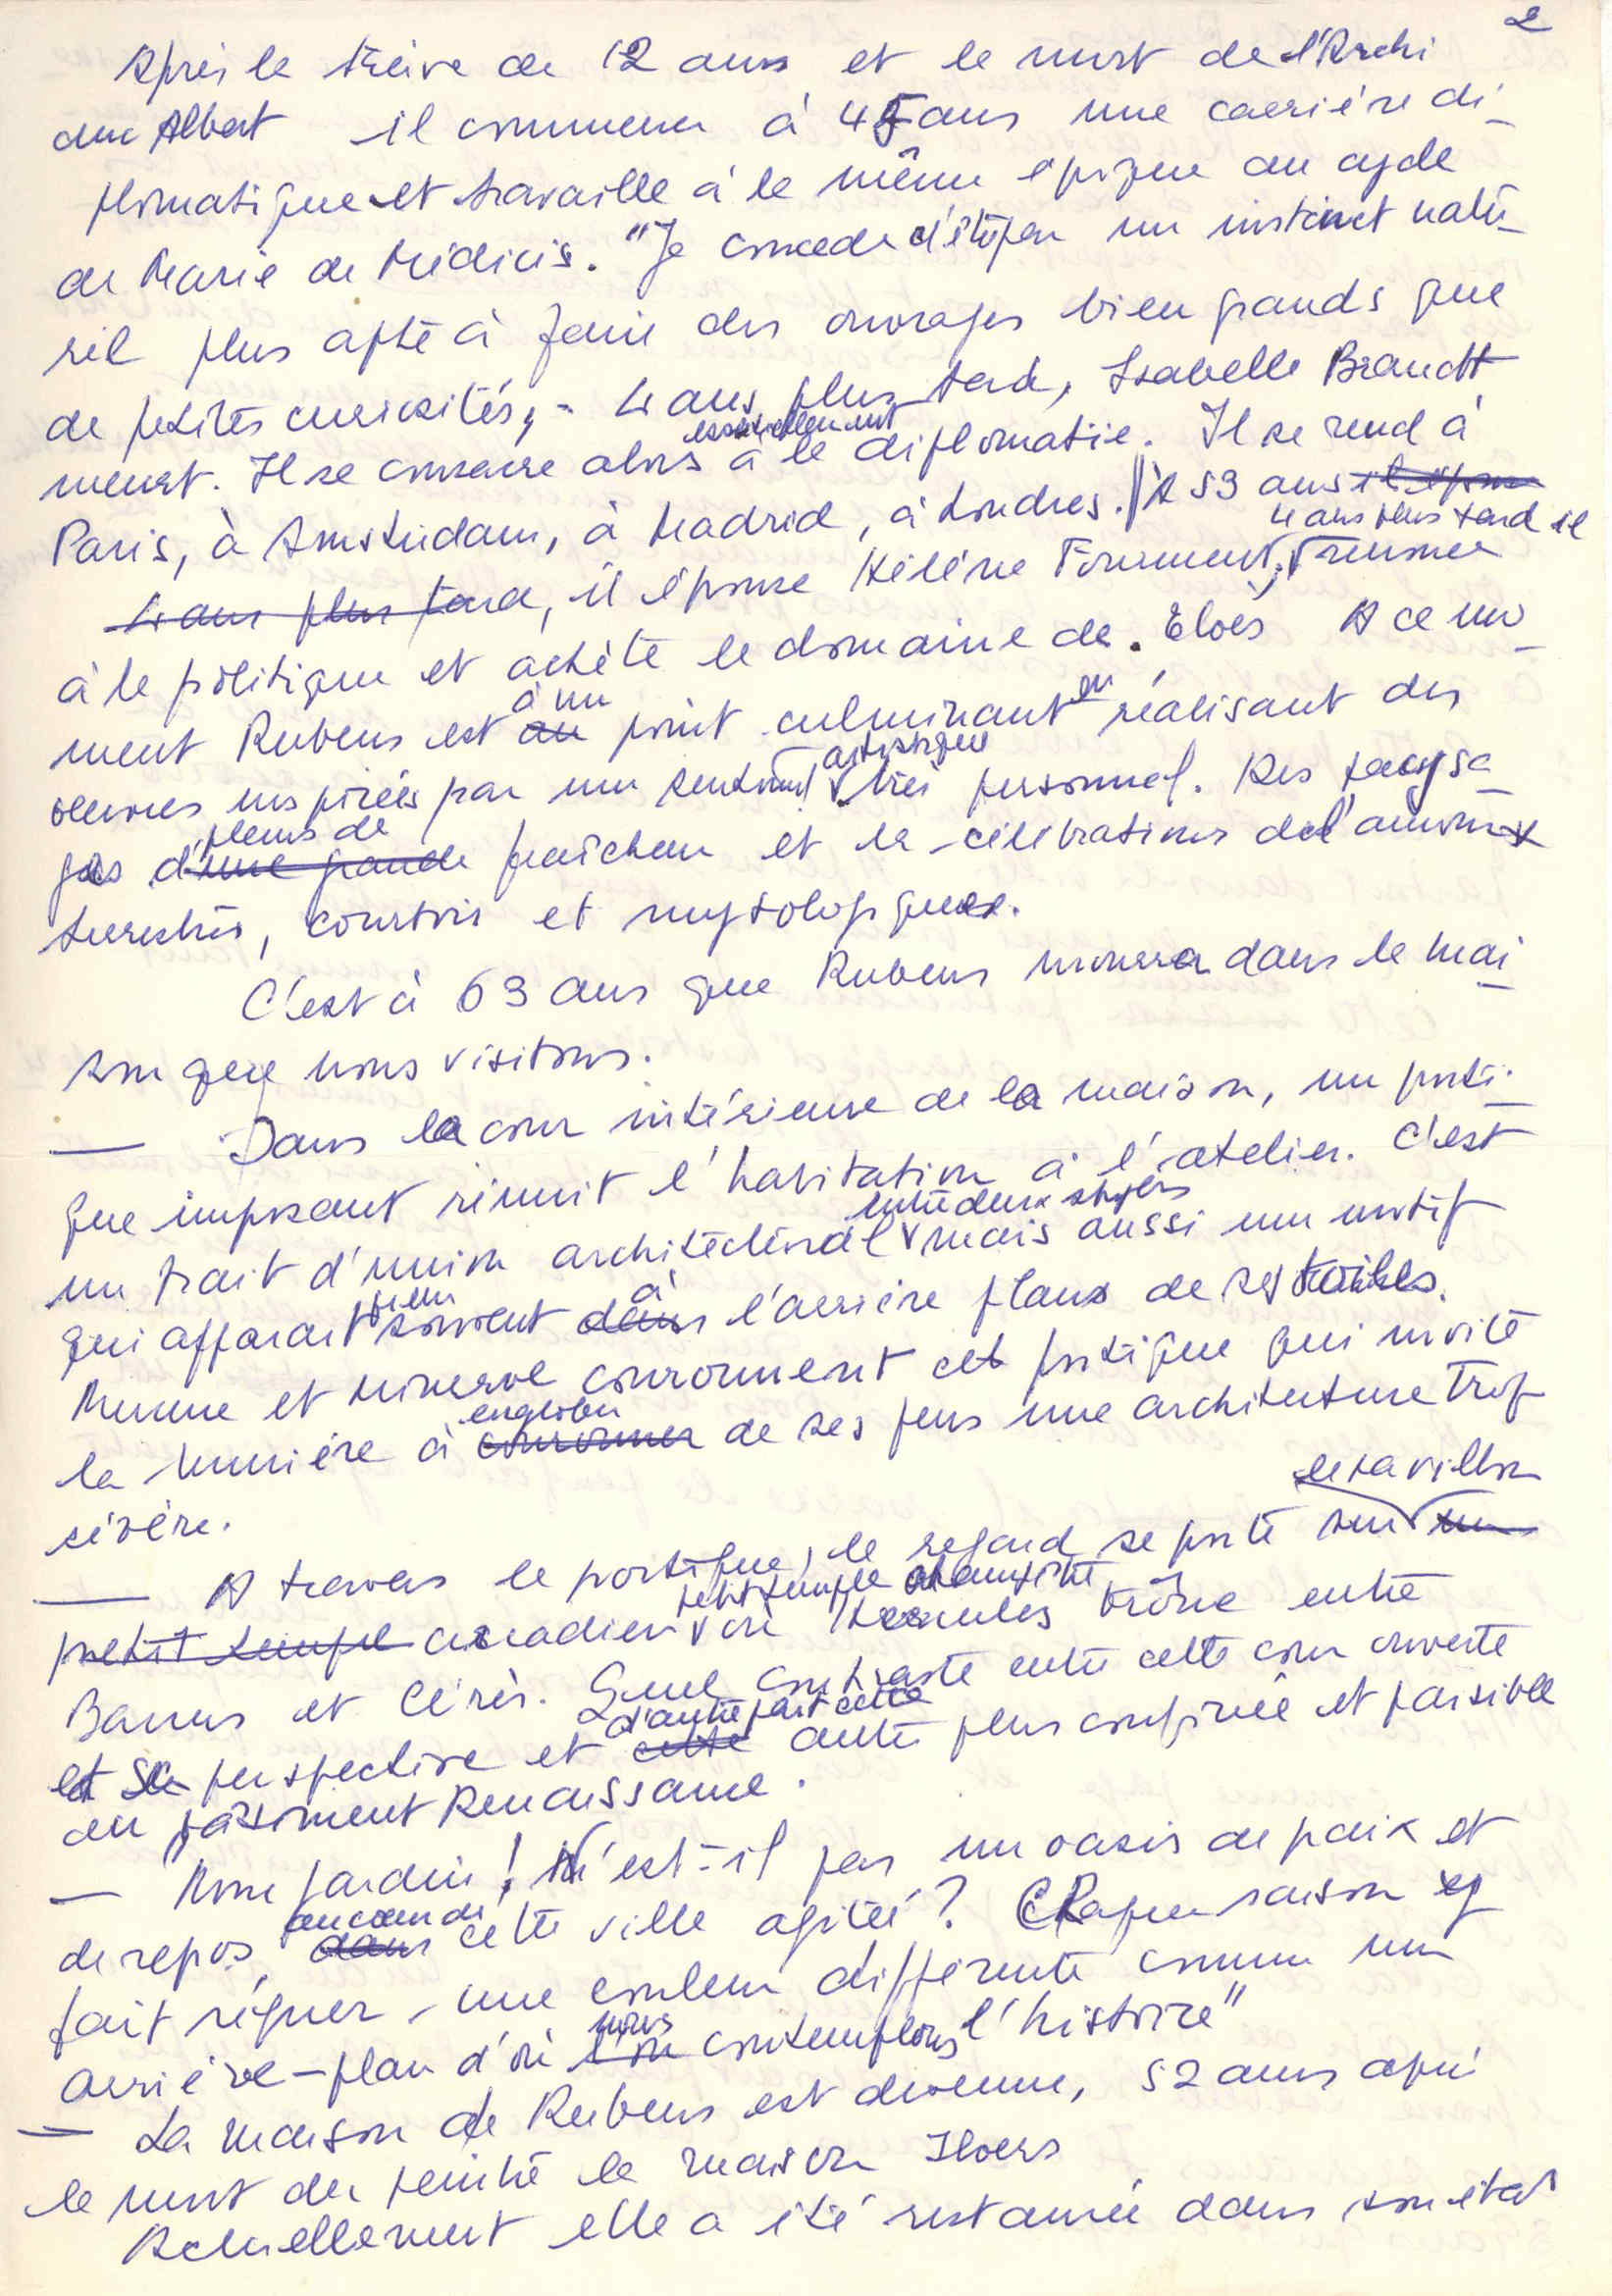 2
Après la trêve de 12 ans et la mort de l'Archi
duc Albert il commence à 45 ans une carrière di-
plomatique et travaille à la même époque au cycle
de Marie de Médicis. "Je concede d'être par un instinct natu-
rel plus apte à faire des ouvrages bien grands que
de petites curiosités, - 4 ans plus tard, Isabelle Brandt
meurt. Il se consacre alors essentiellement à la diplomatie. Il se rend à
Paris, à Amsterdam, à Madrid, à Londres. // A 53 ans il épouse
4 ans plus tard, il épouse Hélène Fourment, 4 ans plus tard il renonce
à la politique et achète le domaine de . Eloès A ce mo-
ment Rubens est au à un point culminant en réalisant des
oeuvres inspirées par un sentiment artistique très personnel. Des paysa-
ges d'une grande pleins de fraîcheur et la célébrations de l'amour
terrestres, courtois et mytologiques.
C'est à 63 ans que Rubens mourra dans la mai-
son que nous visitons.
— Dans la cour intérieure de la maison, un porti-
que imposant réunit l'habitation à l'atelier. C'est
un trait d'union architectural entre deux styles mais aussi un motif
qui apparait bien souvent dans à l'arrière plans de ses toiles.
Mercure et Minerve couronnent cet portique qui invite
la lumière à couronner englober de ses feux une architecture trop
sévère.
— A travers le portique, le regard se porte sur un le pavillon
petit temple arcadien petit temple où Hercules trône entre
Bacchus et Cérès. Quel contraste entre cette cour ouverte
et sa perspective et cette d'autre part cette autre plus confinée et paisible
au bâtiment Renaissance.
— Mon jardin! N'est-il pas un oasis de paix et
de repos, dans au coeur de cette ville agitée? Chaque saison y
fait régner une couleur différente comme un
arrière-plan d'où l'on nous contemplons l'histoire"
— La maison de Rubens est devenue, 52 ans après
la mort du peintre la maison
Actuellement elle a été restaurée dans son état